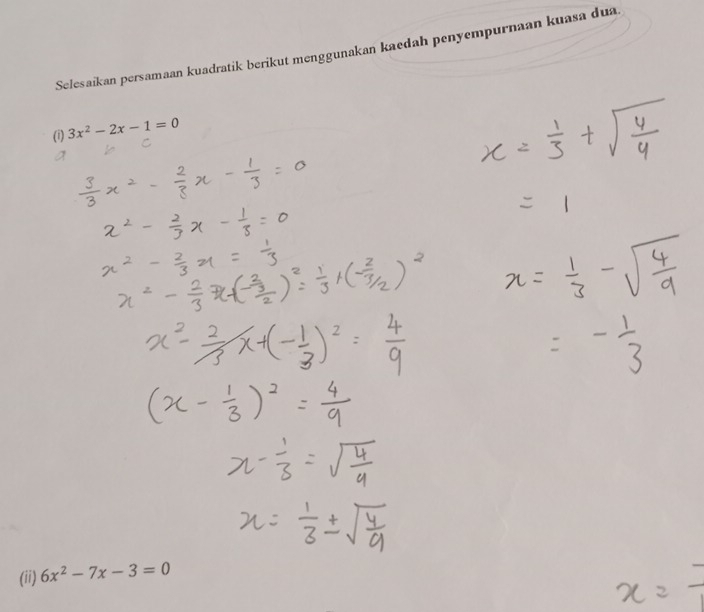 Selesaikan persamaan kuadratik berikut menggunakan kaedah penyempurnaan kuasa dua.
(i) 3x² − 2x − 1 = 0
a b c
3/3 x² - 2/3 x - 1/3 = 0
x² - 2/3 x - 1/3 = 0
x² - 2/3 x = 1/3
x² - 2/3 x + (-2/3/2)² = 1/3 + (-2/3/2)²
x² - 2/3 x + (-1/3)² = 4/9
(x - 1/3)² = 4/9
x - 1/3 = √4/9
x = 1/3 ± √4/9
x = 1/3 + √4/9
= 1
x = 1/3 - √4/9
= -1/3
(ii) 6x² − 7x − 3 = 0
x =